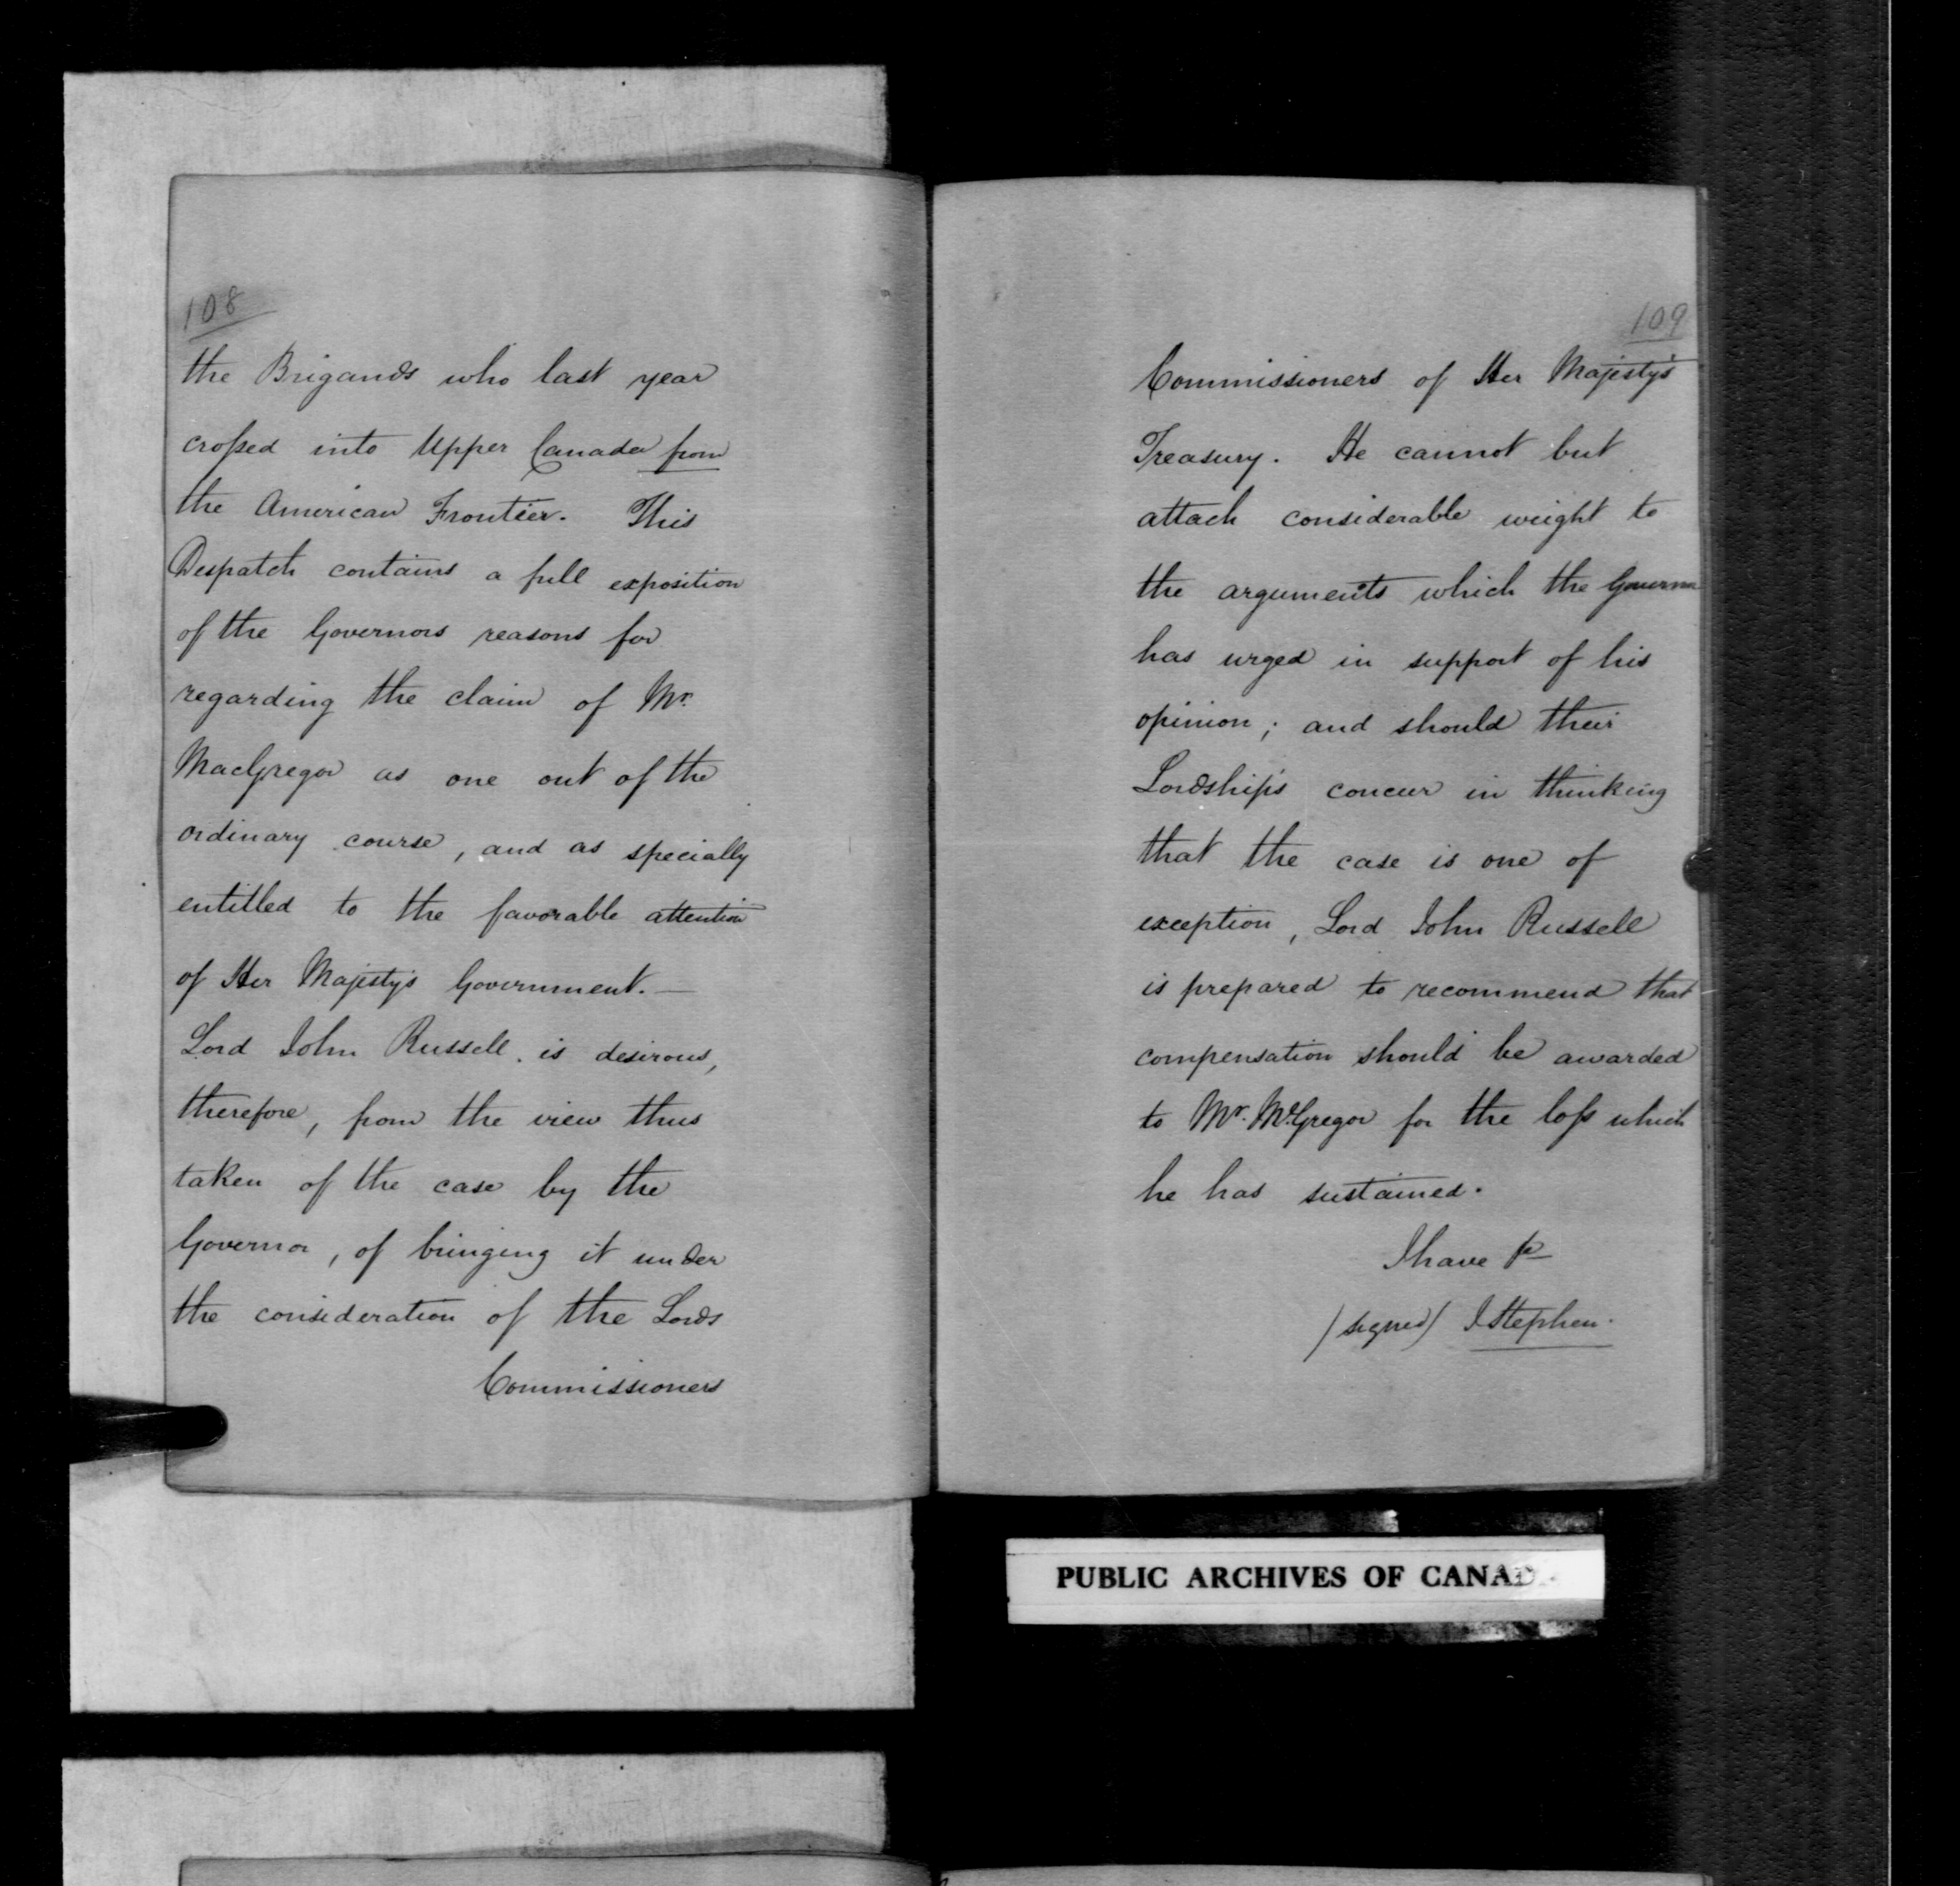 108
the Brigands who last year
crossed into Upper Canada from
the American Frontier. This
Despatch contains a full exposition
of the Governors reasons for
regarding the claim of Mr.
MacGregor as one out of the
ordinary course, and as specially
entitled to the favorable attention
of Her Majesty's Government. —
Lord John Russell. is desirous,
therefore, from the view thus
taken of the case by the
Governor, of bringing it under
the consideration of the Lords
Commissioners
109
Commissioners of Her Majesty's
Treasury. He cannot but
attach considerable weight to
the arguments which the Governor
has urged in support of his
opinion; and should their
Lordships concur in thinking
that the case is one of
exception, Lord John Russell
is prepared to recommend that
compensation should be awarded
to Mr. McGregor for the loss which
he has sustained.
I have &c
(signed) J Stephen.
PUBLIC ARCHIVES OF CANAD